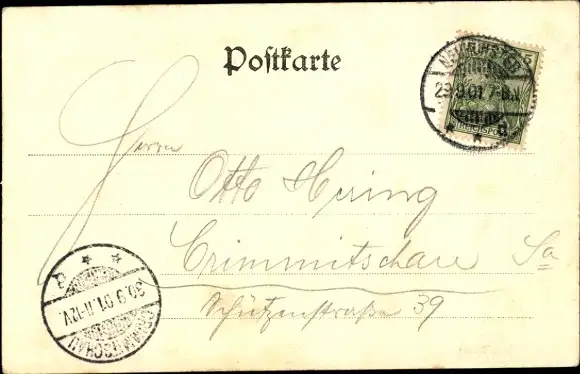 Postkarte
29.9.01. 7-8.N
5
Herrn
Otto Hering
Crimmitschau Sa
Schützenstraße 39
30.9.01.11-12V.
CRIMMITSCHAU